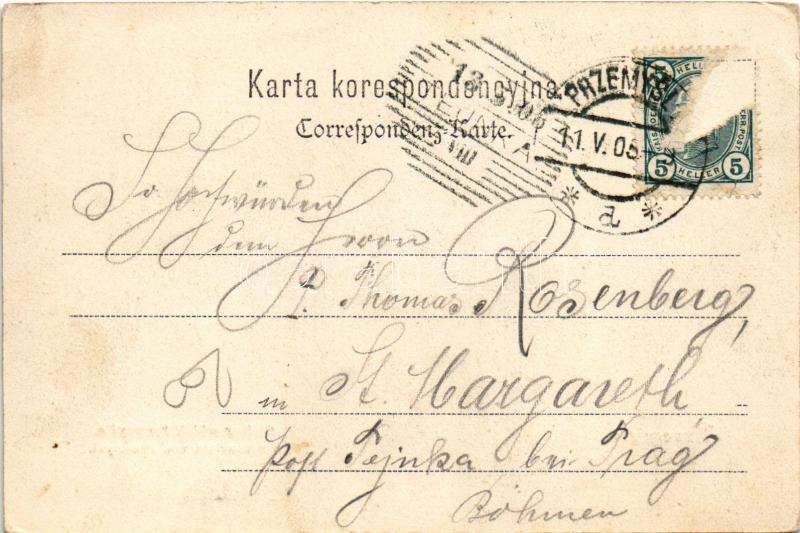 Karta korespondencyjna.
Correspondenz-Karte.
PRZEMYŚL
11.V.05
13. V. 05
VIII
HELLER
5 5
HELLER
Sr Hochwürden
dem Herrn
P. Thomas Rosenberg,
in St. Margareth,
post Tejnka bei Prag
Böhmen